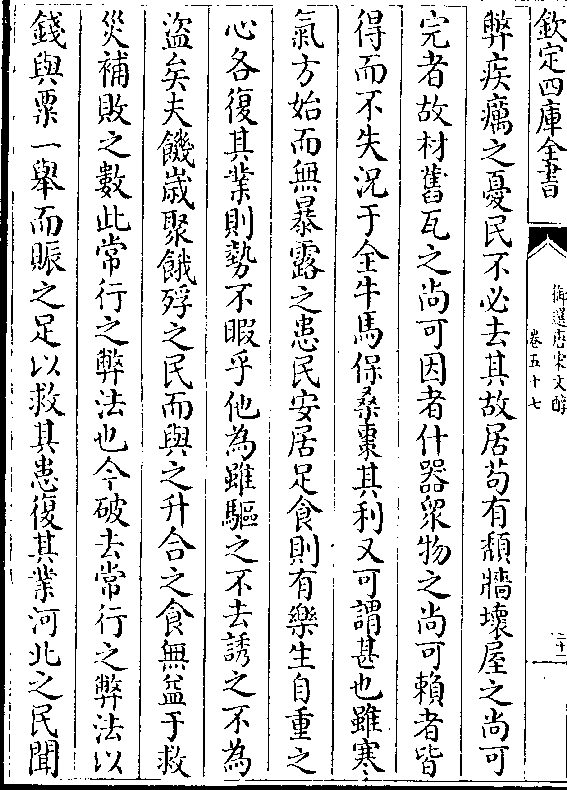 欽定四庫全書
御選唐宋文醇
卷五十七
二十一
弊疾癘之憂民不必去其故居苟有頽牆壞屋之尚可
完者故材舊瓦之尚可因者什器眾物之尚可賴者皆
得而不失況于全牛馬保桑棗其利又可謂甚也雖寒
氣方始而無暴露之患民安居足食則有樂生自重之
心各復其業則勢不暇乎他為雖驅之不去誘之不為
盜矣夫饑嵗聚餓殍之民而與之升合之食無益于救
災補敗之數此常行之弊法也今破去常行之弊法以
錢與粟一舉而賑之足以救其患復其業河北之民聞